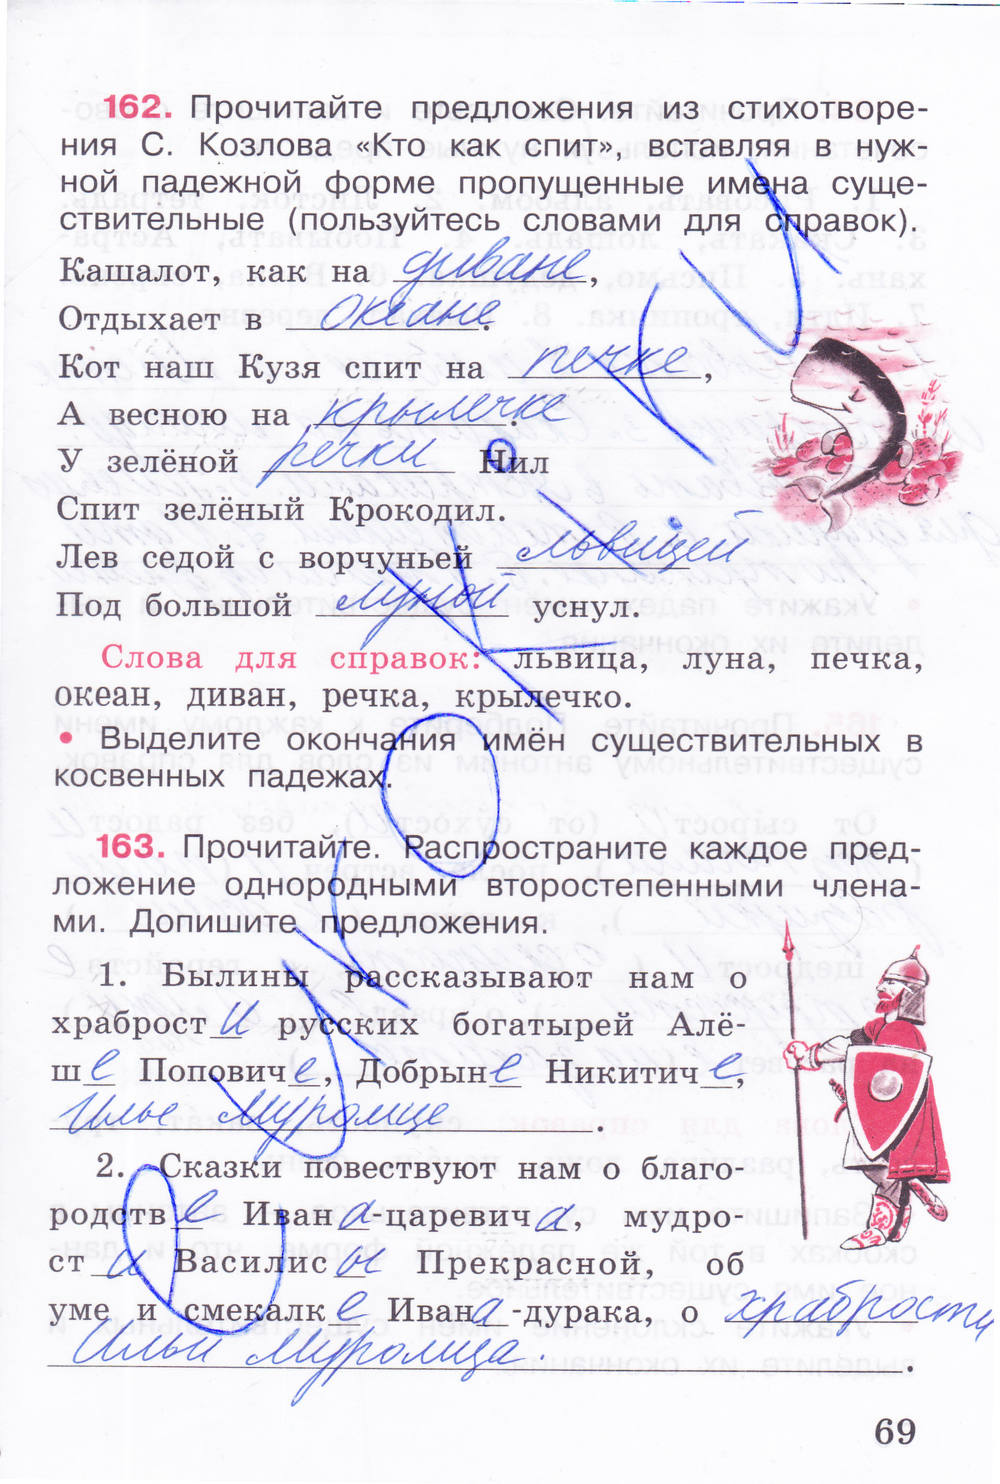 162. Прочитайте предложения из стихотворе-
ния С. Козлова «Кто как спит», вставляя в нуж-
ной падежной форме пропущенные имена суще-
ствительные (пользуйтесь словами для справок).
Кашалот, как на диване,
Отдыхает в океане.
Кот наш Кузя спит на печке,
А весною на крылечке.
У зелёной речки Нил
Спит зелёный Крокодил.
Лев седой с ворчуньей львицей
Под большой луной уснул.
Слова для справок: львица, луна, печка,
океан, диван, речка, крылечко.
• Выделите окончания имён существительных в
косвенных падежах.
163. Прочитайте. Распространите каждое пред-
ложение однородными второстепенными члена-
ми. Допишите предложения.
1. Былины рассказывают нам о
храбрости русских богатырей Алё-
ше Поповиче, Добрыне Никитиче,
Илье Муромце.
2. Сказки повествуют нам о благо-
родстве Ивана-царевича, мудро-
сти Василисы Прекрасной, об
уме и смекалке Ивана-дурака, о храбрости
Ильи Муромца.
69